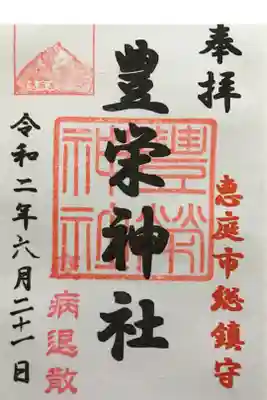 奉拝
恵庭市総鎮守
豊栄神社
豊榮
神社
病退散
令和二年六月二十一日